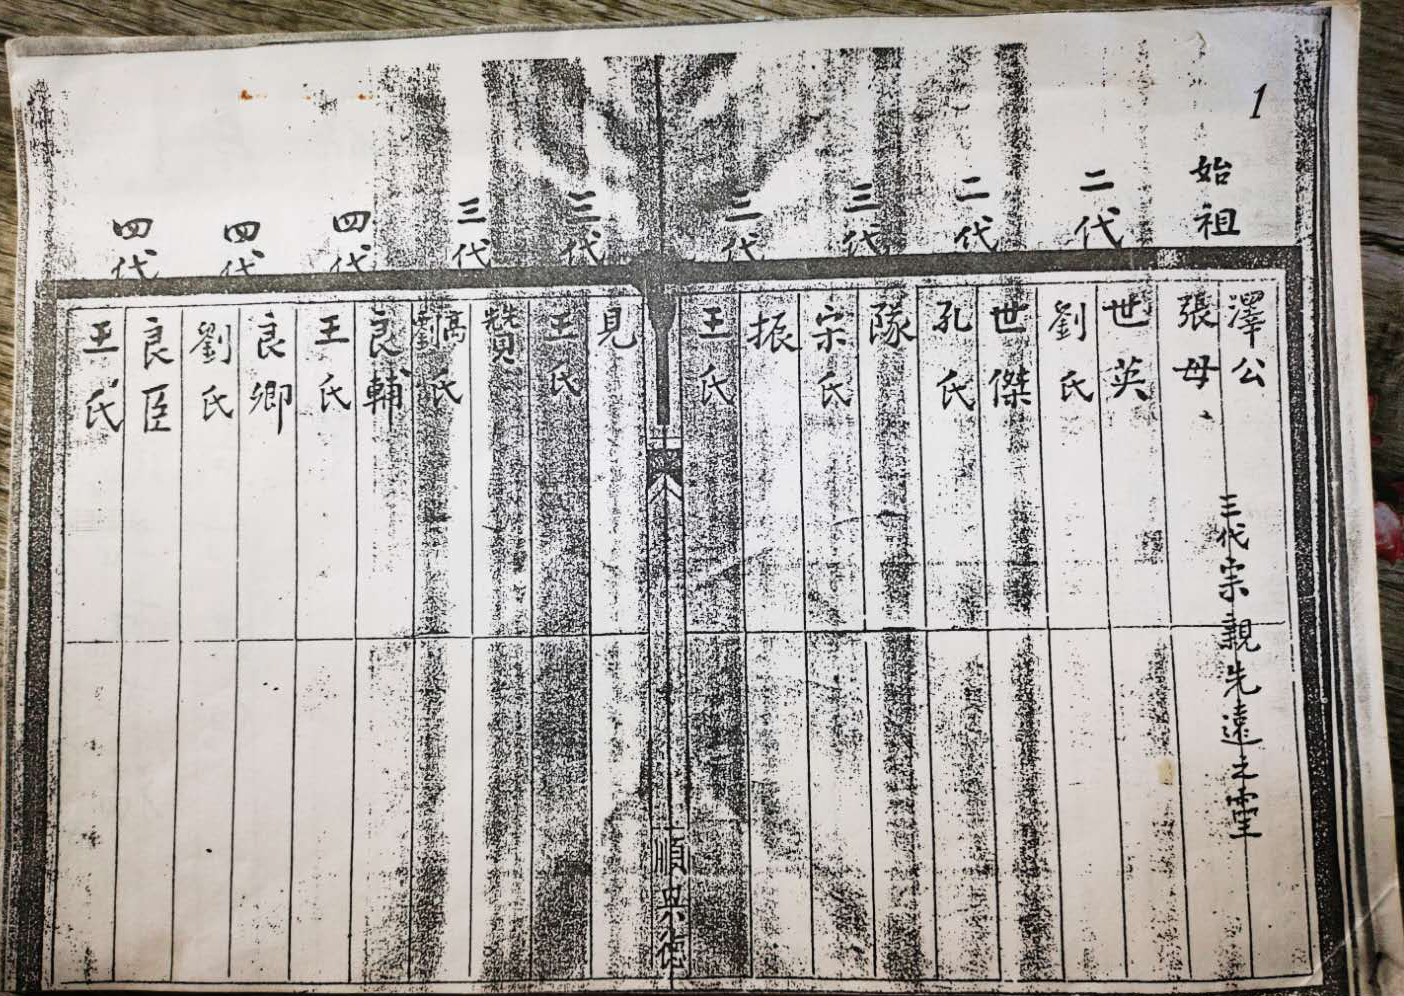 1
始祖
澤公
張母
三代宗親先遠之靈
二代
世英
劉氏
二代
世傑
孔氏
三代
隊
宋氏
三代
振
王氏
順興德
三代
見
王氏
三代
贊
高氏
劉
四代
良輔
王氏
四代
良卿
劉氏
四代
良臣
王氏